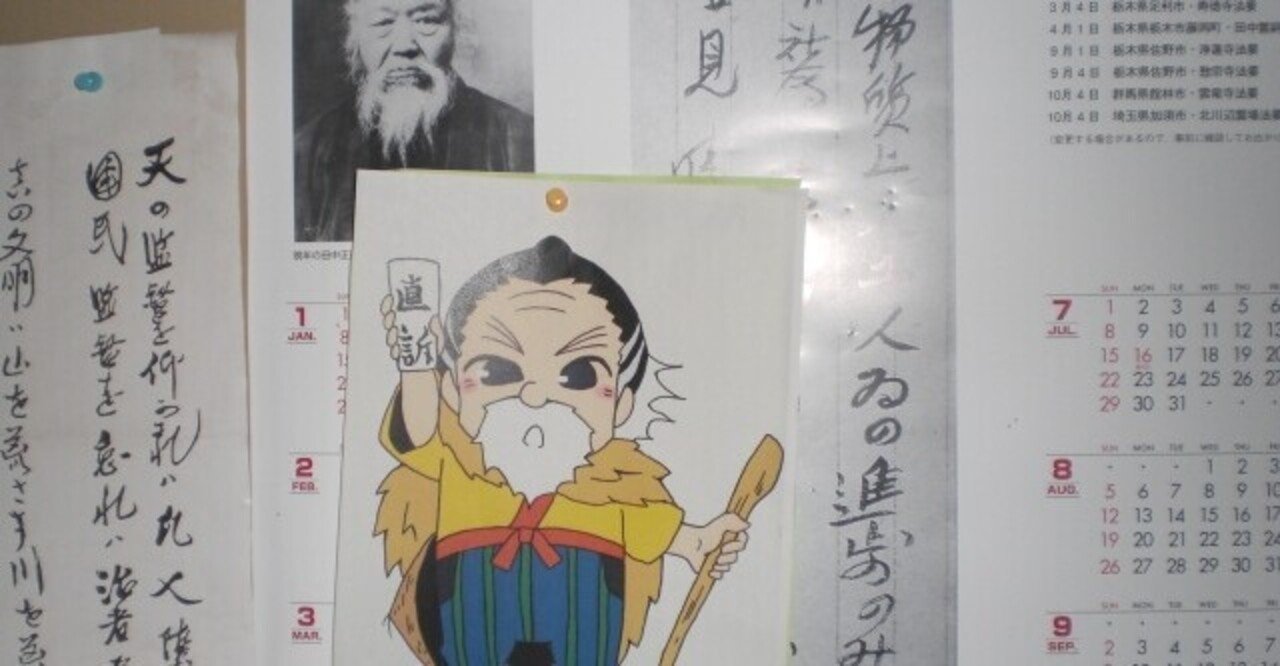 天の監督を仰がざれバ凡人堕
国民監督を怠れバ治者
真の文明ハ山を荒さず川を荒
晩年の田中正
直訴
物質上
人為の進歩のみ
社会
見
3月4日 栃木県足利市・寿徳寺法要
4月1日 栃木県栃木市藤岡町・田中霊祠
9月1日 栃木県佐野市・浄蓮寺法要
9月4日 栃木県佐野市・惣宗寺法要
10月4日 群馬県館林市・雲龍寺法要
10月4日 埼玉県加須市・北川辺霊場法要
1
JAN.
2
FEB.
3
MAR.
7
JUL.
SUN MON TUE WED THU
1 2 3 4 5 6
8 9 10 11 12 13
15 16 17 18 19 20
22 23 24 25 26 27
29 30 31
8
AUG.
SUN MON TUE WED THU
1 2 3
5 6 7 8 9 10
12 13 14 15 16 17
19 20 21 22 23 24
26 27 28 29 30 31
9
SEP.
SUN MON TUE WED THU
2 3 4 5 6 7